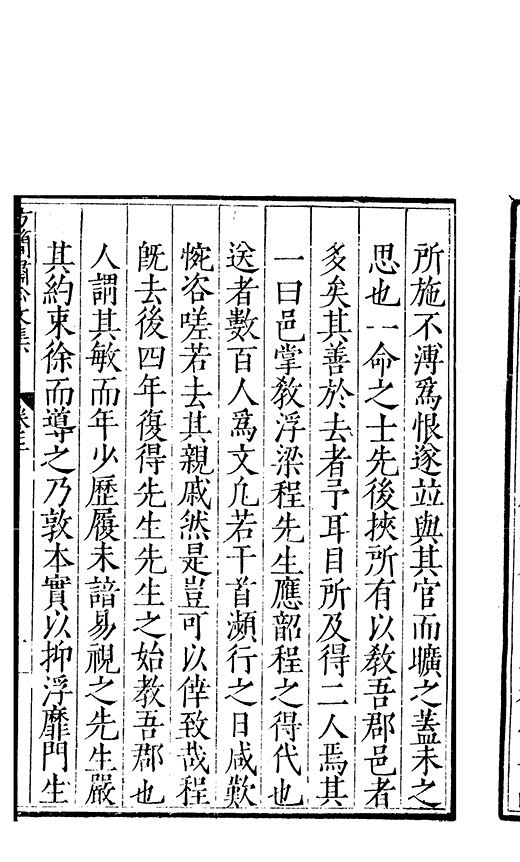 所施不溥爲恨遂竝與其官而曠之蓋未之
思也一命之士先後挾所有以教吾郡邑者
多矣其善於去者予耳目所及得二人焉其
一曰邑掌教浮梁程先生應韶程之得代也
送者數百人爲文凡若干首瀕行之日咸歎
惋咨嗟若去其親戚然是豈可以倖致哉程
旣去後四年復得先生先生之始教吾郡也
人謂其敏而年少歷履未諳易視之先生嚴
其約束徐而導之乃敦本實以抑浮靡門生
方簡肅公文集 卷三